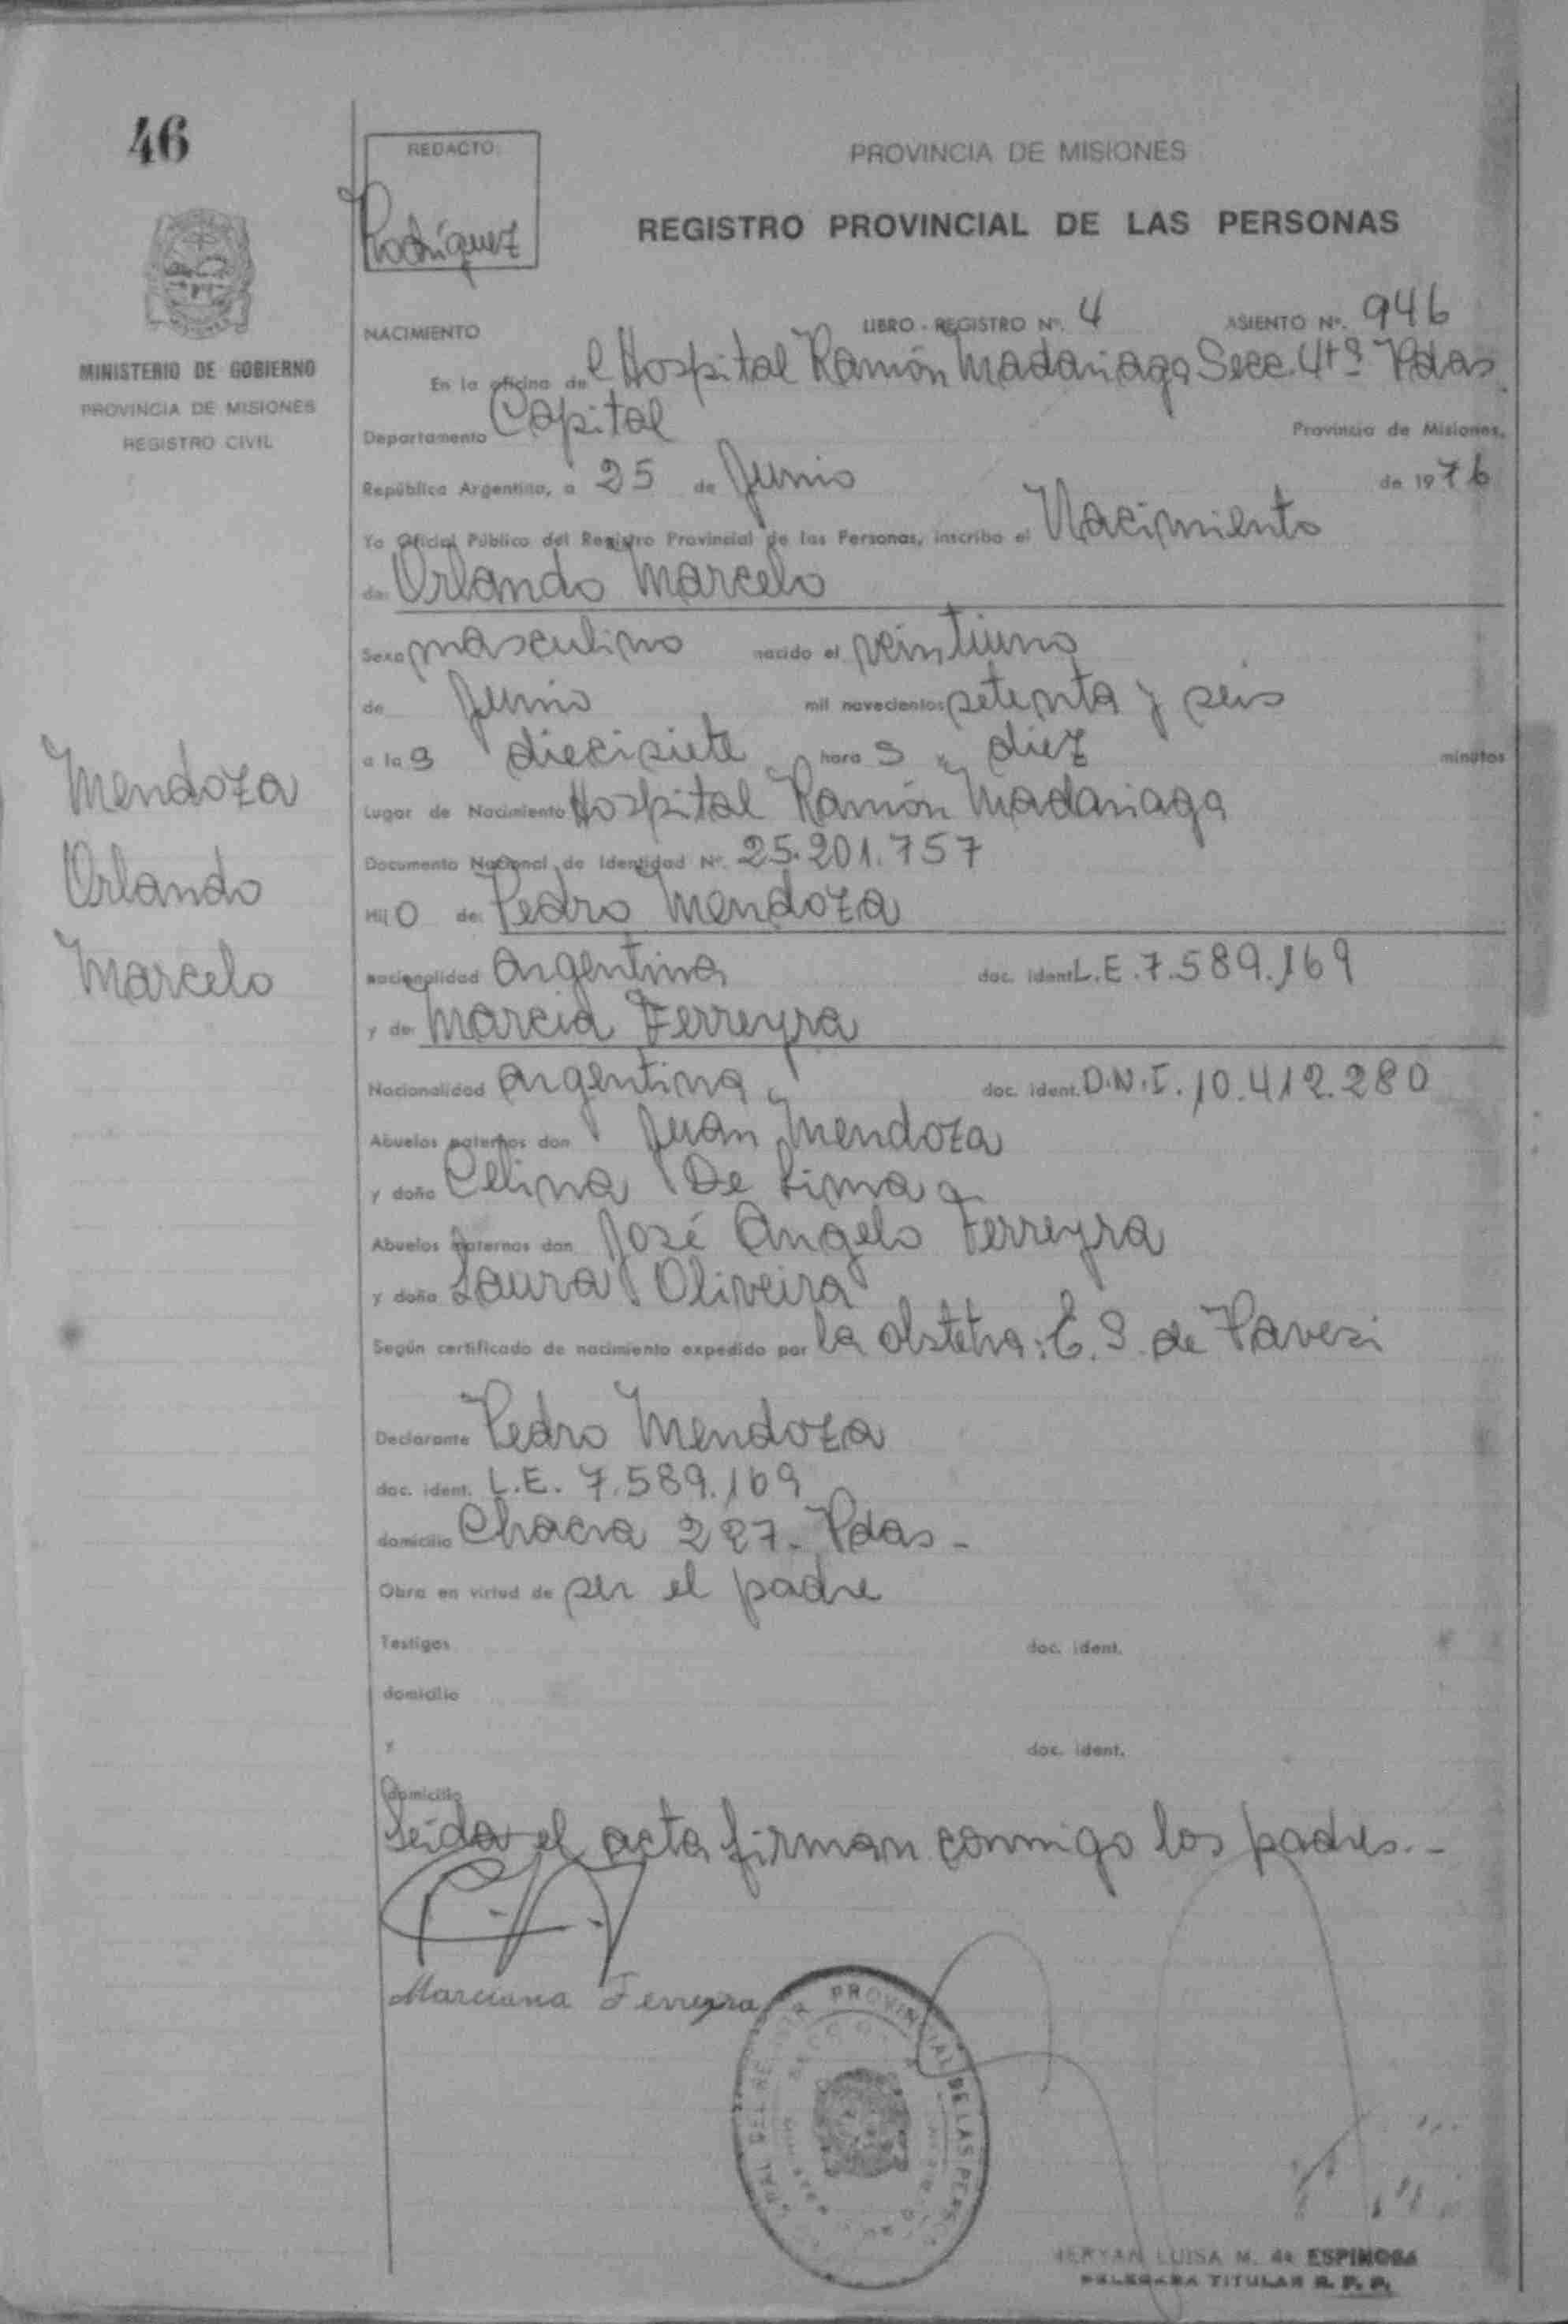 46
REDACTO
Rodríguez
PROVINCIA DE MISIONES
REGISTRO PROVINCIAL DE LAS PERSONAS
MINISTERIO DE GOBIERNO
PROVINCIA DE MISIONES
REGISTRO CIVIL
NACIMIENTO LIBRO - REGISTRO Nº. 4 ASIENTO Nº. 946
En la oficina del Hospital Ramón Madariaga Secc. 4tª Pdas
Departamento Capital Provincia de Misiones,
República Argentina, a 25 de Junio de 1976
Yo Oficial Público del Registro Provincial de las Personas, inscribo el Nacimiento
de: Orlando Marcelo
Sexo masculino nacido el veintiuno
de Junio mil novecientos setenta y seis
a las diecisiete horas y diez minutos
Lugar de Nacimiento Hospital Ramón Madariaga
Documento Nacional de Identidad Nº. 25.201.757
Hijo de: Pedro Mendoza
nacionalidad argentina doc. ident. L.E. 7.589.169
y de: Marcia Ferreyra
Nacionalidad argentina doc. ident. D.N.I. 10.412.280
Abuelos paternos don Juan Mendoza
y doña Celina De Lima
Abuelos maternos don José Angelo Ferreyra
y doña Laura Oliveira
Según certificado de nacimiento expedido por la obstetra: E. S. de Pavesi
Declarante Pedro Mendoza
doc. ident. L.E. 7.589.169
domicilio Chacra 227- Pdas -
Obra en virtud de ser el padre
Testigos doc. ident.
domicilio
y doc. ident.
domicilio
Leída el acta firman conmigo los padres.-
Marciana Ferreyra
Mendoza
Orlando
Marcelo
PROVINCIAL DE LAS PERS
LUISA M. de ESPINOSA
DELEGADA TITULAR R. P. P.